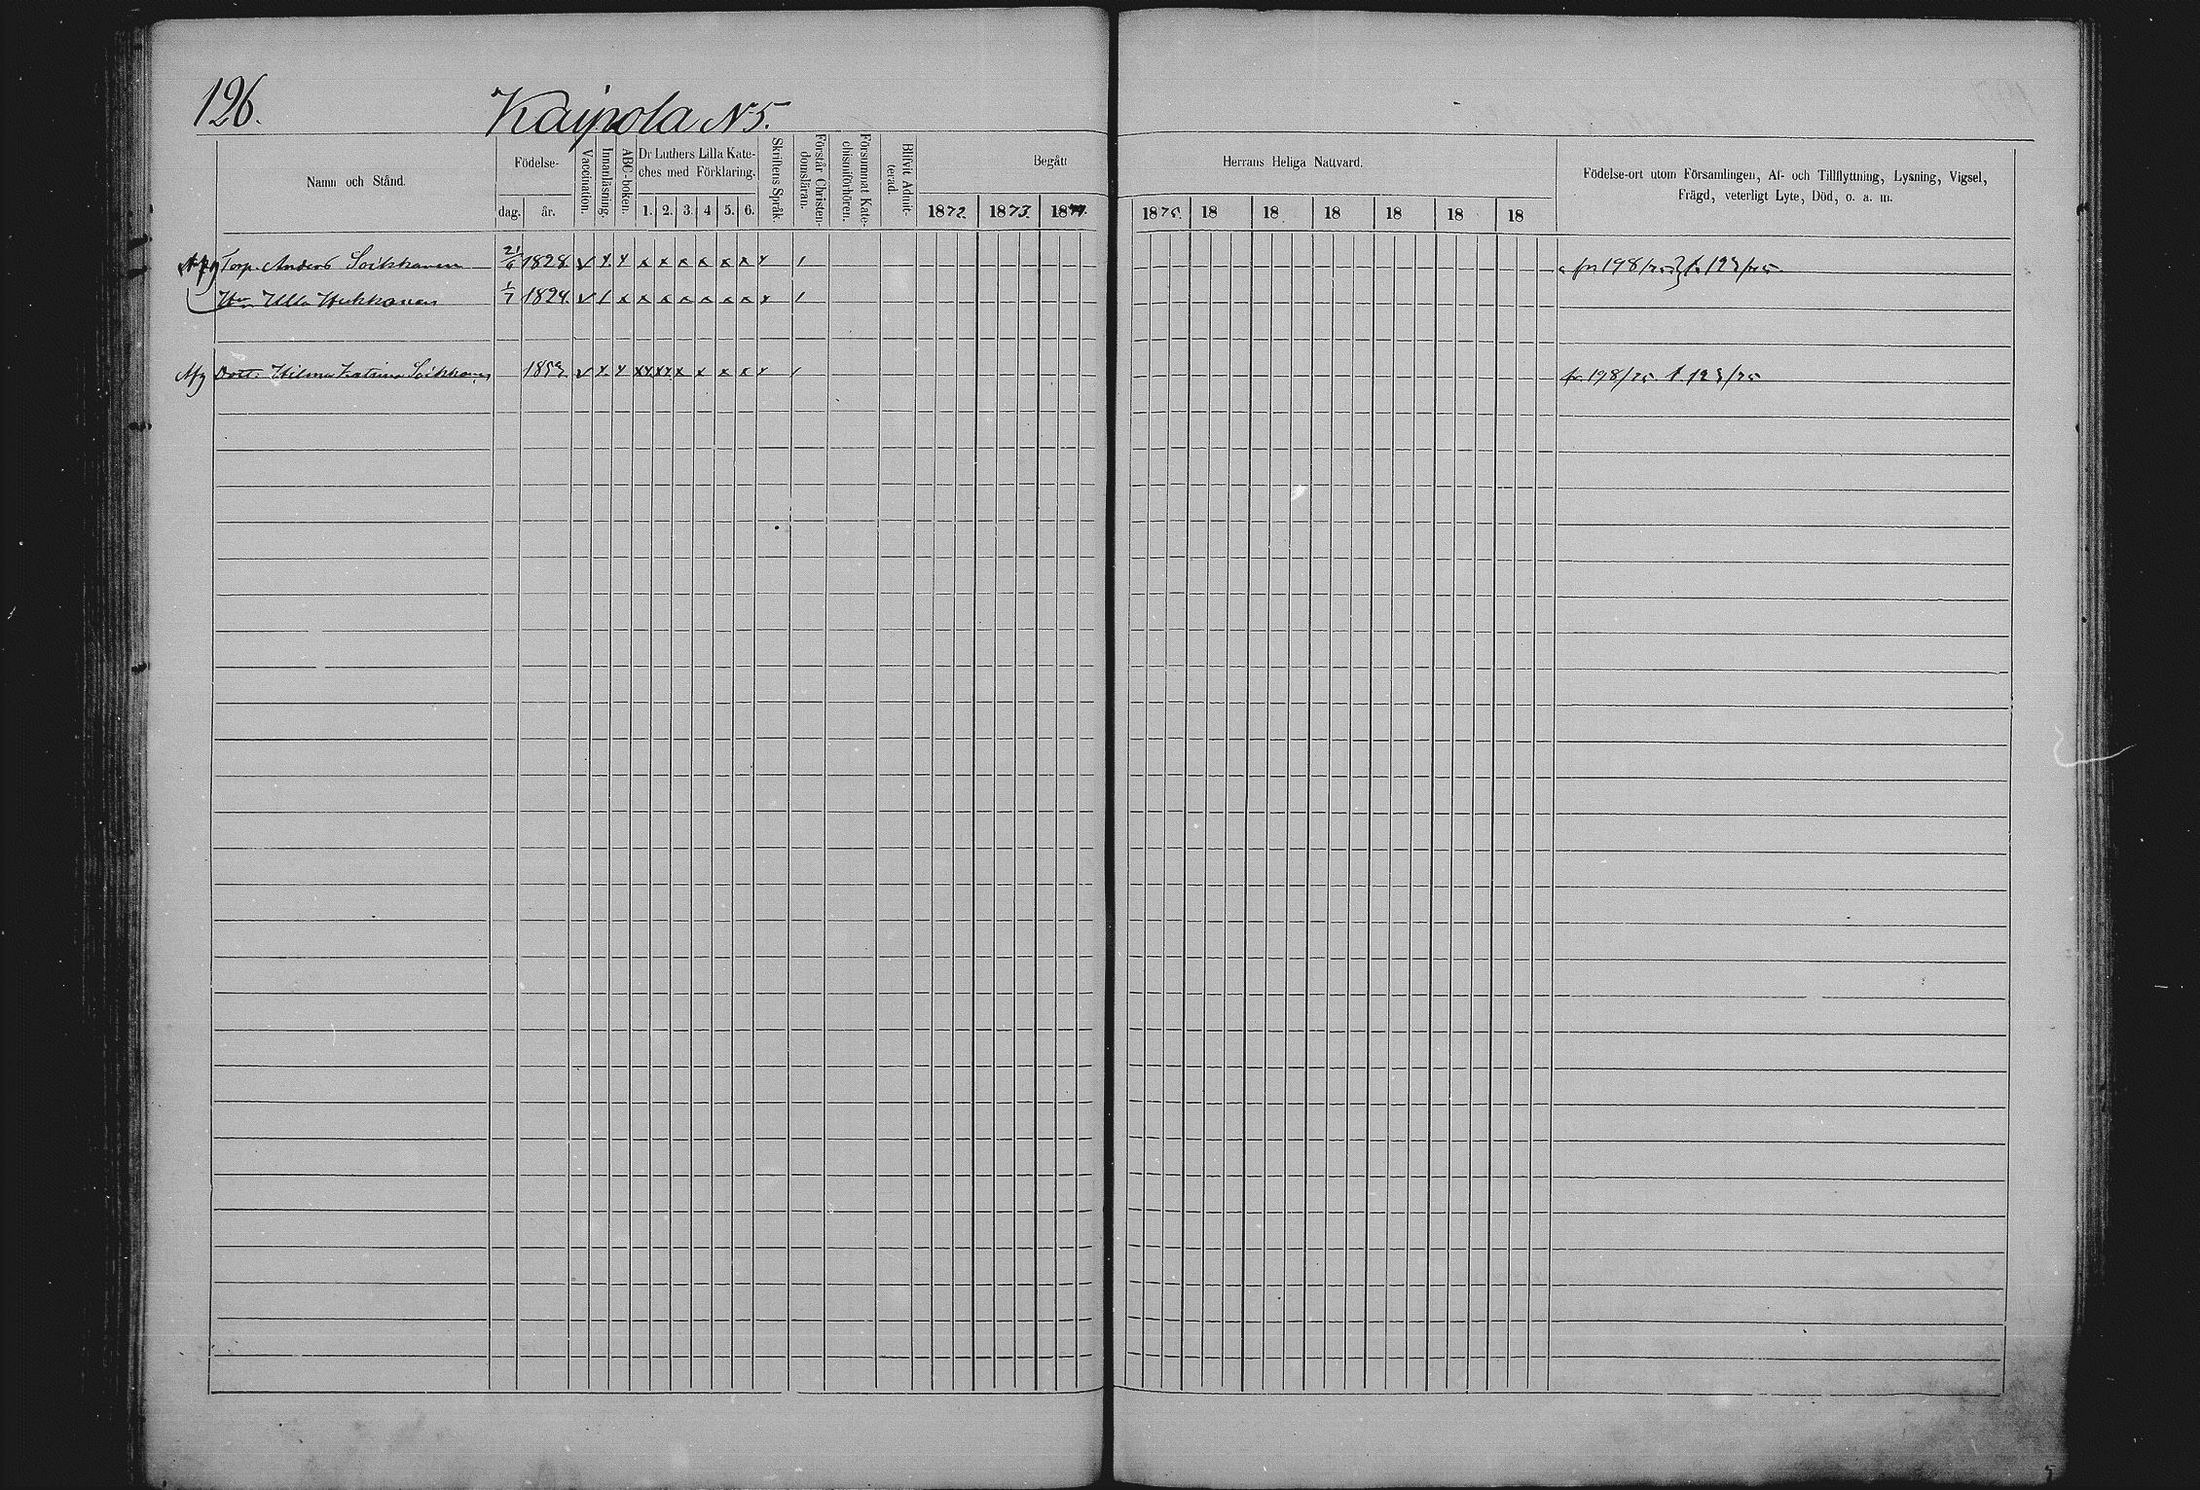 126.
Kaipola N5.
Namn och Stånd.
Födelse-
dag. år.
Vaccination.
Innanläsning.
ABC-boken.
Dr Luthers Lilla Kate-
ches med Förklaring.
1. 2. 3. 4 5. 6.
Skriftens Språk
Förstår Christen-
domsläran.
Försummat Kate-
chismiförhören.
Blifvit Admit-
terad.
Begått
1872. 1873. 1874.
Herrans Heliga Nattvard.
1875. 18 18 18 18 18 18
Födelse-ort utom Församlingen, Af- och Tillflyttning, Lysning, Vigsel,
Frägd, veterligt Lyte, Död, o. a. m.
Torp. Anders Soikkanen 21/6 1828. v x x x x x x x x x / fr 198/75 t. 123/75
Hu Ulla 1/7 1824. v / x x x x x x x x /
Afg Dott. Hilma Katrina Soikkanen v x x x x x / fr 198/75 t 123/75